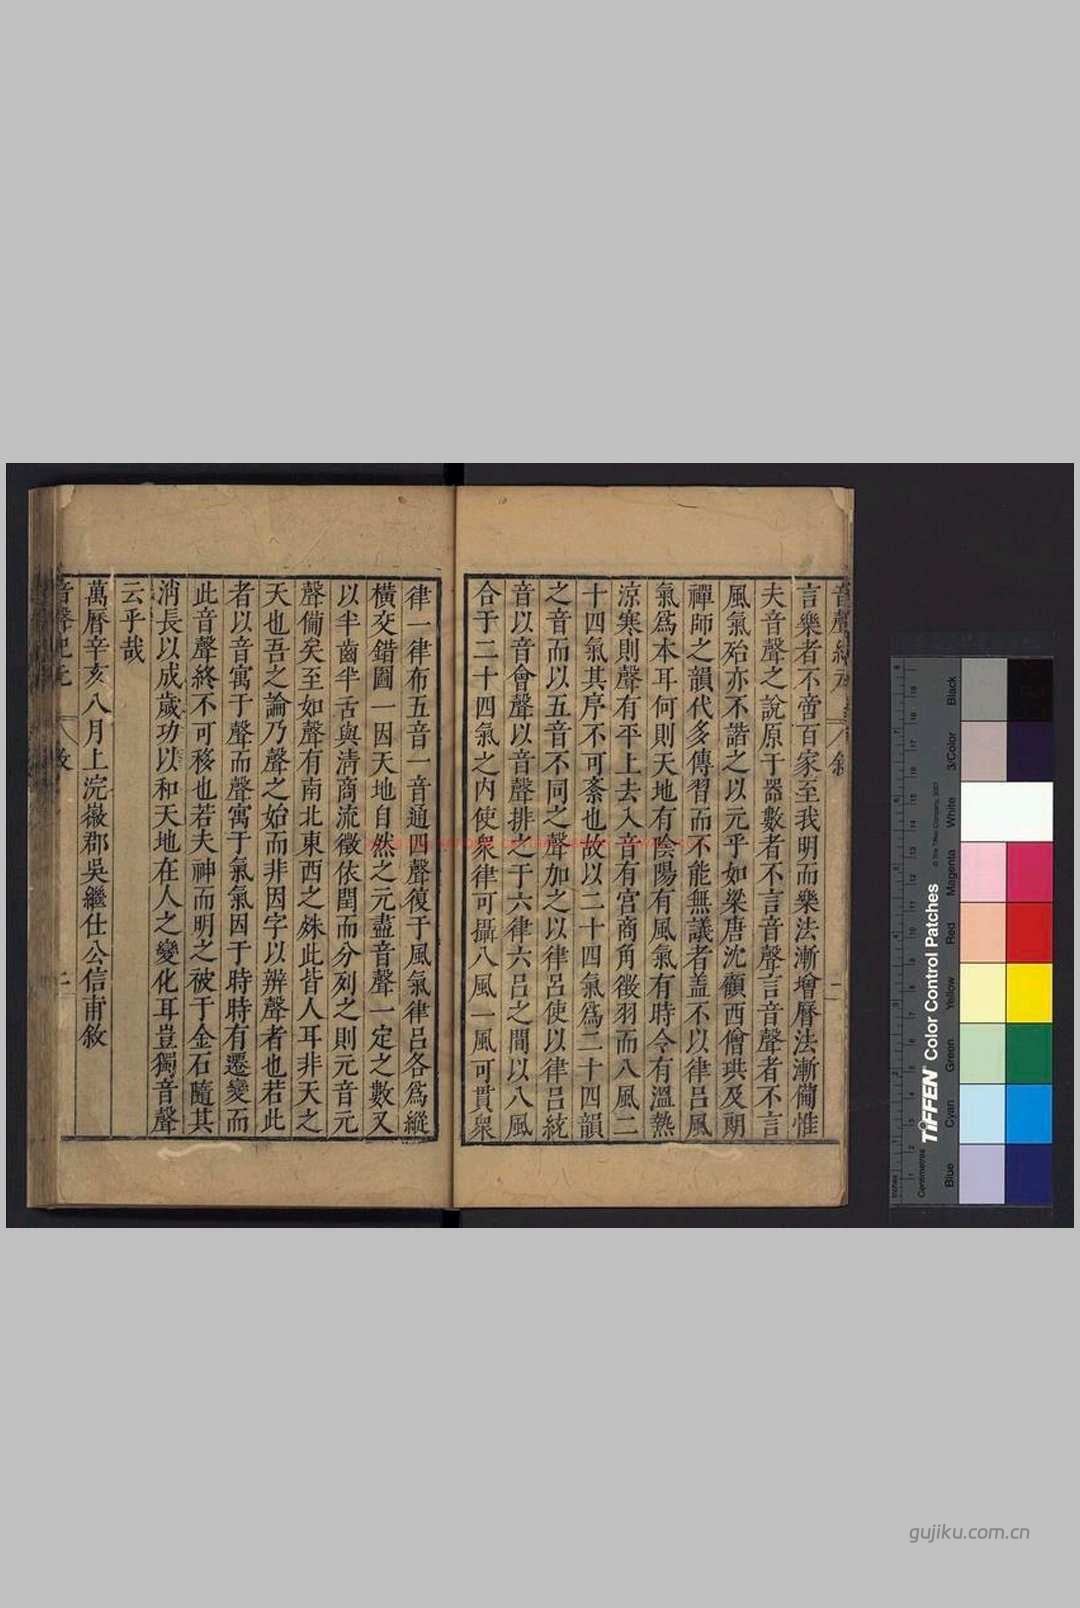 言樂者不啻百家至我明而樂法漸增曆法漸備惟
夫音聲之說原于器數者不言音聲言音聲者不言
風氣殆亦不諧之以元乎如梁唐沈顧西僧珙及朙
禪師之韻代多傳習而不能無議者盖不以律呂風
氣爲本耳何則天地有陰陽有風氣有時令有溫熱
涼寒則聲有平上去入音有宮商角徵羽而八風二
十四氣其序不可紊也故以二十四氣爲二十四韻
之音而以五音不同之聲加之以律呂使以律呂統
音以音會聲以音聲排之于六律六呂之間以八風
合于二十四氣之内使衆律可攝八風一風可貫衆
律一律布五音一音通四聲復于風氣律呂各爲縱
橫交錯圖一因天地自然之元盡音聲一定之數又
以半齒半舌與清商流徵依閏而分列之則元音元
聲備矣至如聲有南北東西之殊此皆人耳非天之
天也吾之論乃聲之始而非因字以辨聲者也若此
者以音寓于聲而聲寓于氣氣因于時時有遷變而
此音聲終不可移也若夫神而明之被于金石隨其
消長以成歲功以和天地在人之變化耳豈獨音聲
云乎哉
萬曆辛亥八月上浣嶶郡吳繼仕公信甫敘
音聲紀元
敘
二
Inches
Centimetres
TIFFEN Color Control Patches
© The Tiffen Company, 2007
Blue
Cyan
Green
Yellow
Red
Magenta
White
3/Color
Black
gujiku.com.cn